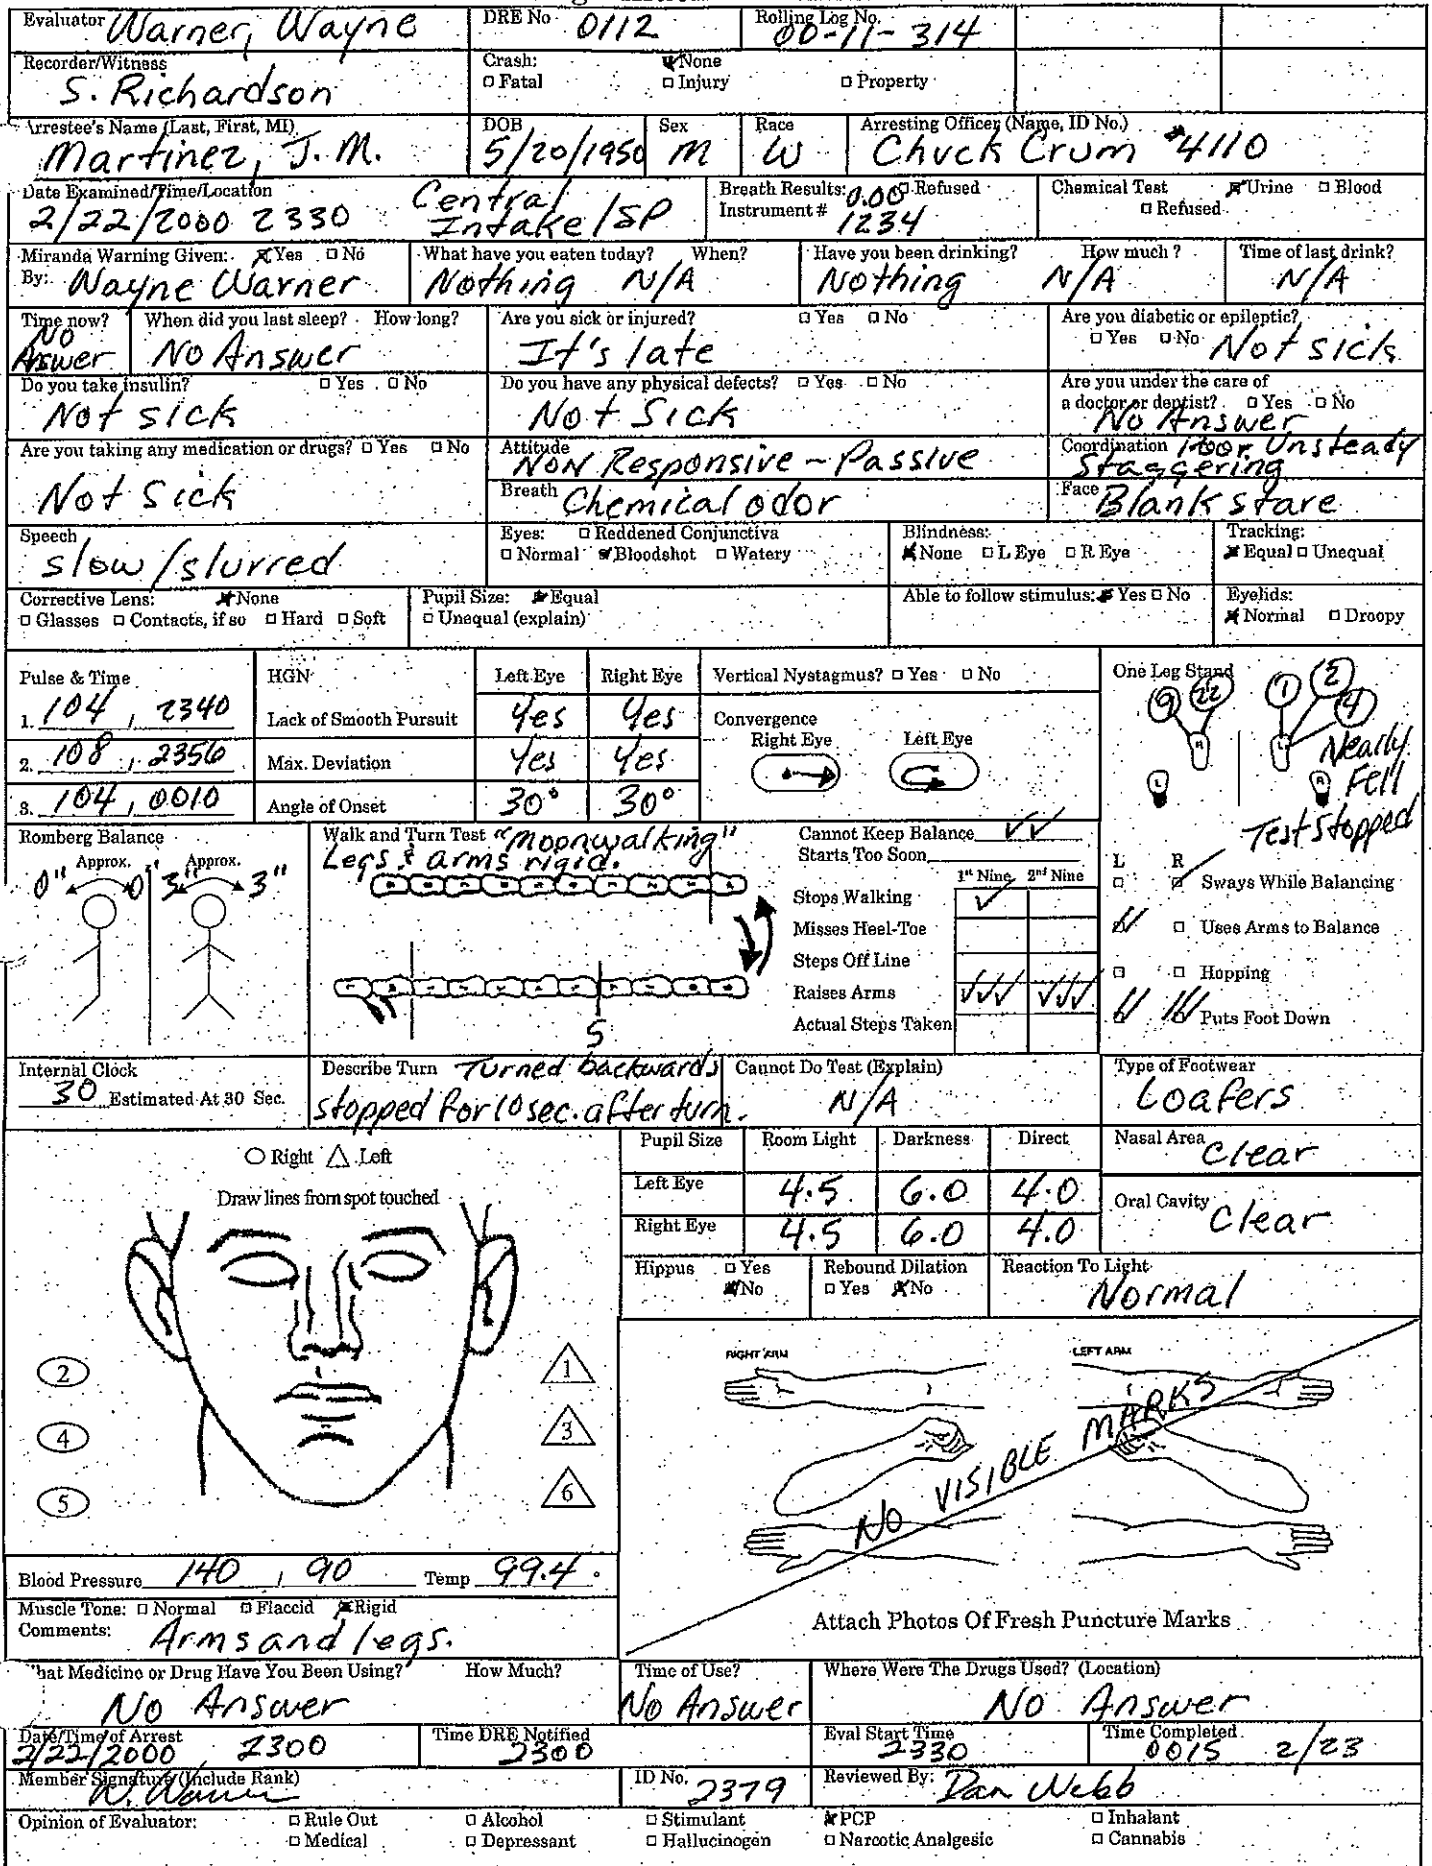 Evaluator Warner, Wayne
DRE No 0112
Rolling Log No. 00-11-314
Recorder/Witness
S. Richardson
Crash: None
Fatal Injury Property
Arrestee's Name (Last, First, MI)
Martinez, J. M.
DOB
5/20/1950
Sex
M
Race
W
Arresting Officer (Name, ID No.)
Chuck Crum #4110
Date Examined/Time/Location
2/22/2000 2330 Central Intake/SP
Breath Results: 0.00 Refused
Instrument # 1234
Chemical Test Urine Blood
Refused
Miranda Warning Given: Yes No
By: Wayne Warner
What have you eaten today? When?
Nothing N/A
Have you been drinking? How much?
Nothing N/A
Time of last drink?
N/A
Time now?
No Answer
When did you last sleep? How long?
No Answer
Are you sick or injured? Yes No
It's late
Are you diabetic or epileptic?
Yes No Not sick
Do you take insulin? Yes No
Not sick
Do you have any physical defects? Yes No
Not Sick
Are you under the care of
a doctor or dentist? Yes No
No Answer
Are you taking any medication or drugs? Yes No
Not Sick
Attitude
Non Responsive - Passive
Coordination Poor, Unsteady
Staggering
Breath Chemical odor
Face Blank stare
Speech
slow/slurred
Eyes: Reddened Conjunctiva
Normal Bloodshot Watery
Blindness:
None L Eye R Eye
Tracking:
Equal Unequal
Corrective Lens: None
Glasses Contacts, if so Hard Soft
Pupil Size: Equal
Unequal (explain)
Able to follow stimulus: Yes No
Eyelids:
Normal Droopy
Pulse & Time
1. 104, 2340
2. 108, 2356
3. 104, 0010
HGN Left Eye Right Eye
Lack of Smooth Pursuit Yes Yes
Max. Deviation Yes Yes
Angle of Onset 30° 30°
Vertical Nystagmus? Yes No
Convergence
Right Eye Left Eye
One Leg Stand
9 22 1 2 4
R L
L R
Nearly
Fell
Test stopped
L R
Sways While Balancing
Uses Arms to Balance
Hopping
Puts Foot Down
Romberg Balance
Approx. Approx.
0" 0" 3" 3"
Walk and Turn Test "Moonwalking"
Legs & arms rigid.
5
Cannot Keep Balance
Starts Too Soon
1st Nine 2nd Nine
Stops Walking
Misses Heel-Toe
Steps Off Line
Raises Arms
Actual Steps Taken
Internal Clock
30 Estimated At 30 Sec.
Describe Turn Turned backwards
stopped for 10 sec. after turn.
Cannot Do Test (Explain)
N/A
Type of Footwear
Loafers
Right Left
Draw lines from spot touched
2 1
4 3
5 6
Pupil Size Room Light Darkness Direct
Left Eye 4.5 6.0 4.0
Right Eye 4.5 6.0 4.0
Nasal Area Clear
Oral Cavity Clear
Hippus Yes
No
Rebound Dilation
Yes No
Reaction To Light
Normal
RIGHT ARM LEFT ARM
NO VISIBLE MARKS
Attach Photos Of Fresh Puncture Marks
Blood Pressure 140, 90 Temp 99.4
Muscle Tone: Normal Flaccid Rigid
Comments: Arms and legs.
hat Medicine or Drug Have You Been Using? How Much?
No Answer
Time of Use?
No Answer
Where Were The Drugs Used? (Location)
No Answer
Date/Time of Arrest
2/22/2000, 2300
Time DRE Notified
2300
Eval Start Time
2330
Time Completed
0015 2/23
Member Signature (Include Rank)
W. Warner
ID No. 2379
Reviewed By: Dan Webb
Opinion of Evaluator: Rule Out Alcohol Stimulant PCP Inhalant
Medical Depressant Hallucinogen Narcotic Analgesic Cannabis